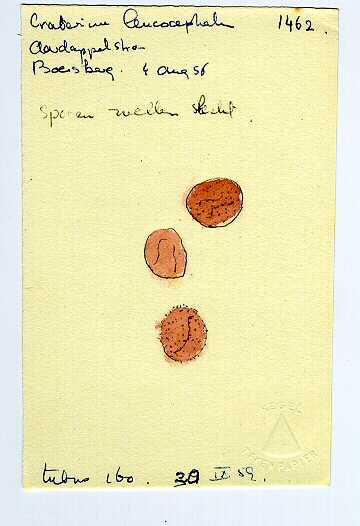 Craterium leucocephalum 1462.
Aardappelstro
Boersberg. 4 aug 56
Sporen zwellen slecht.
tubus 160. 30 IX 89.